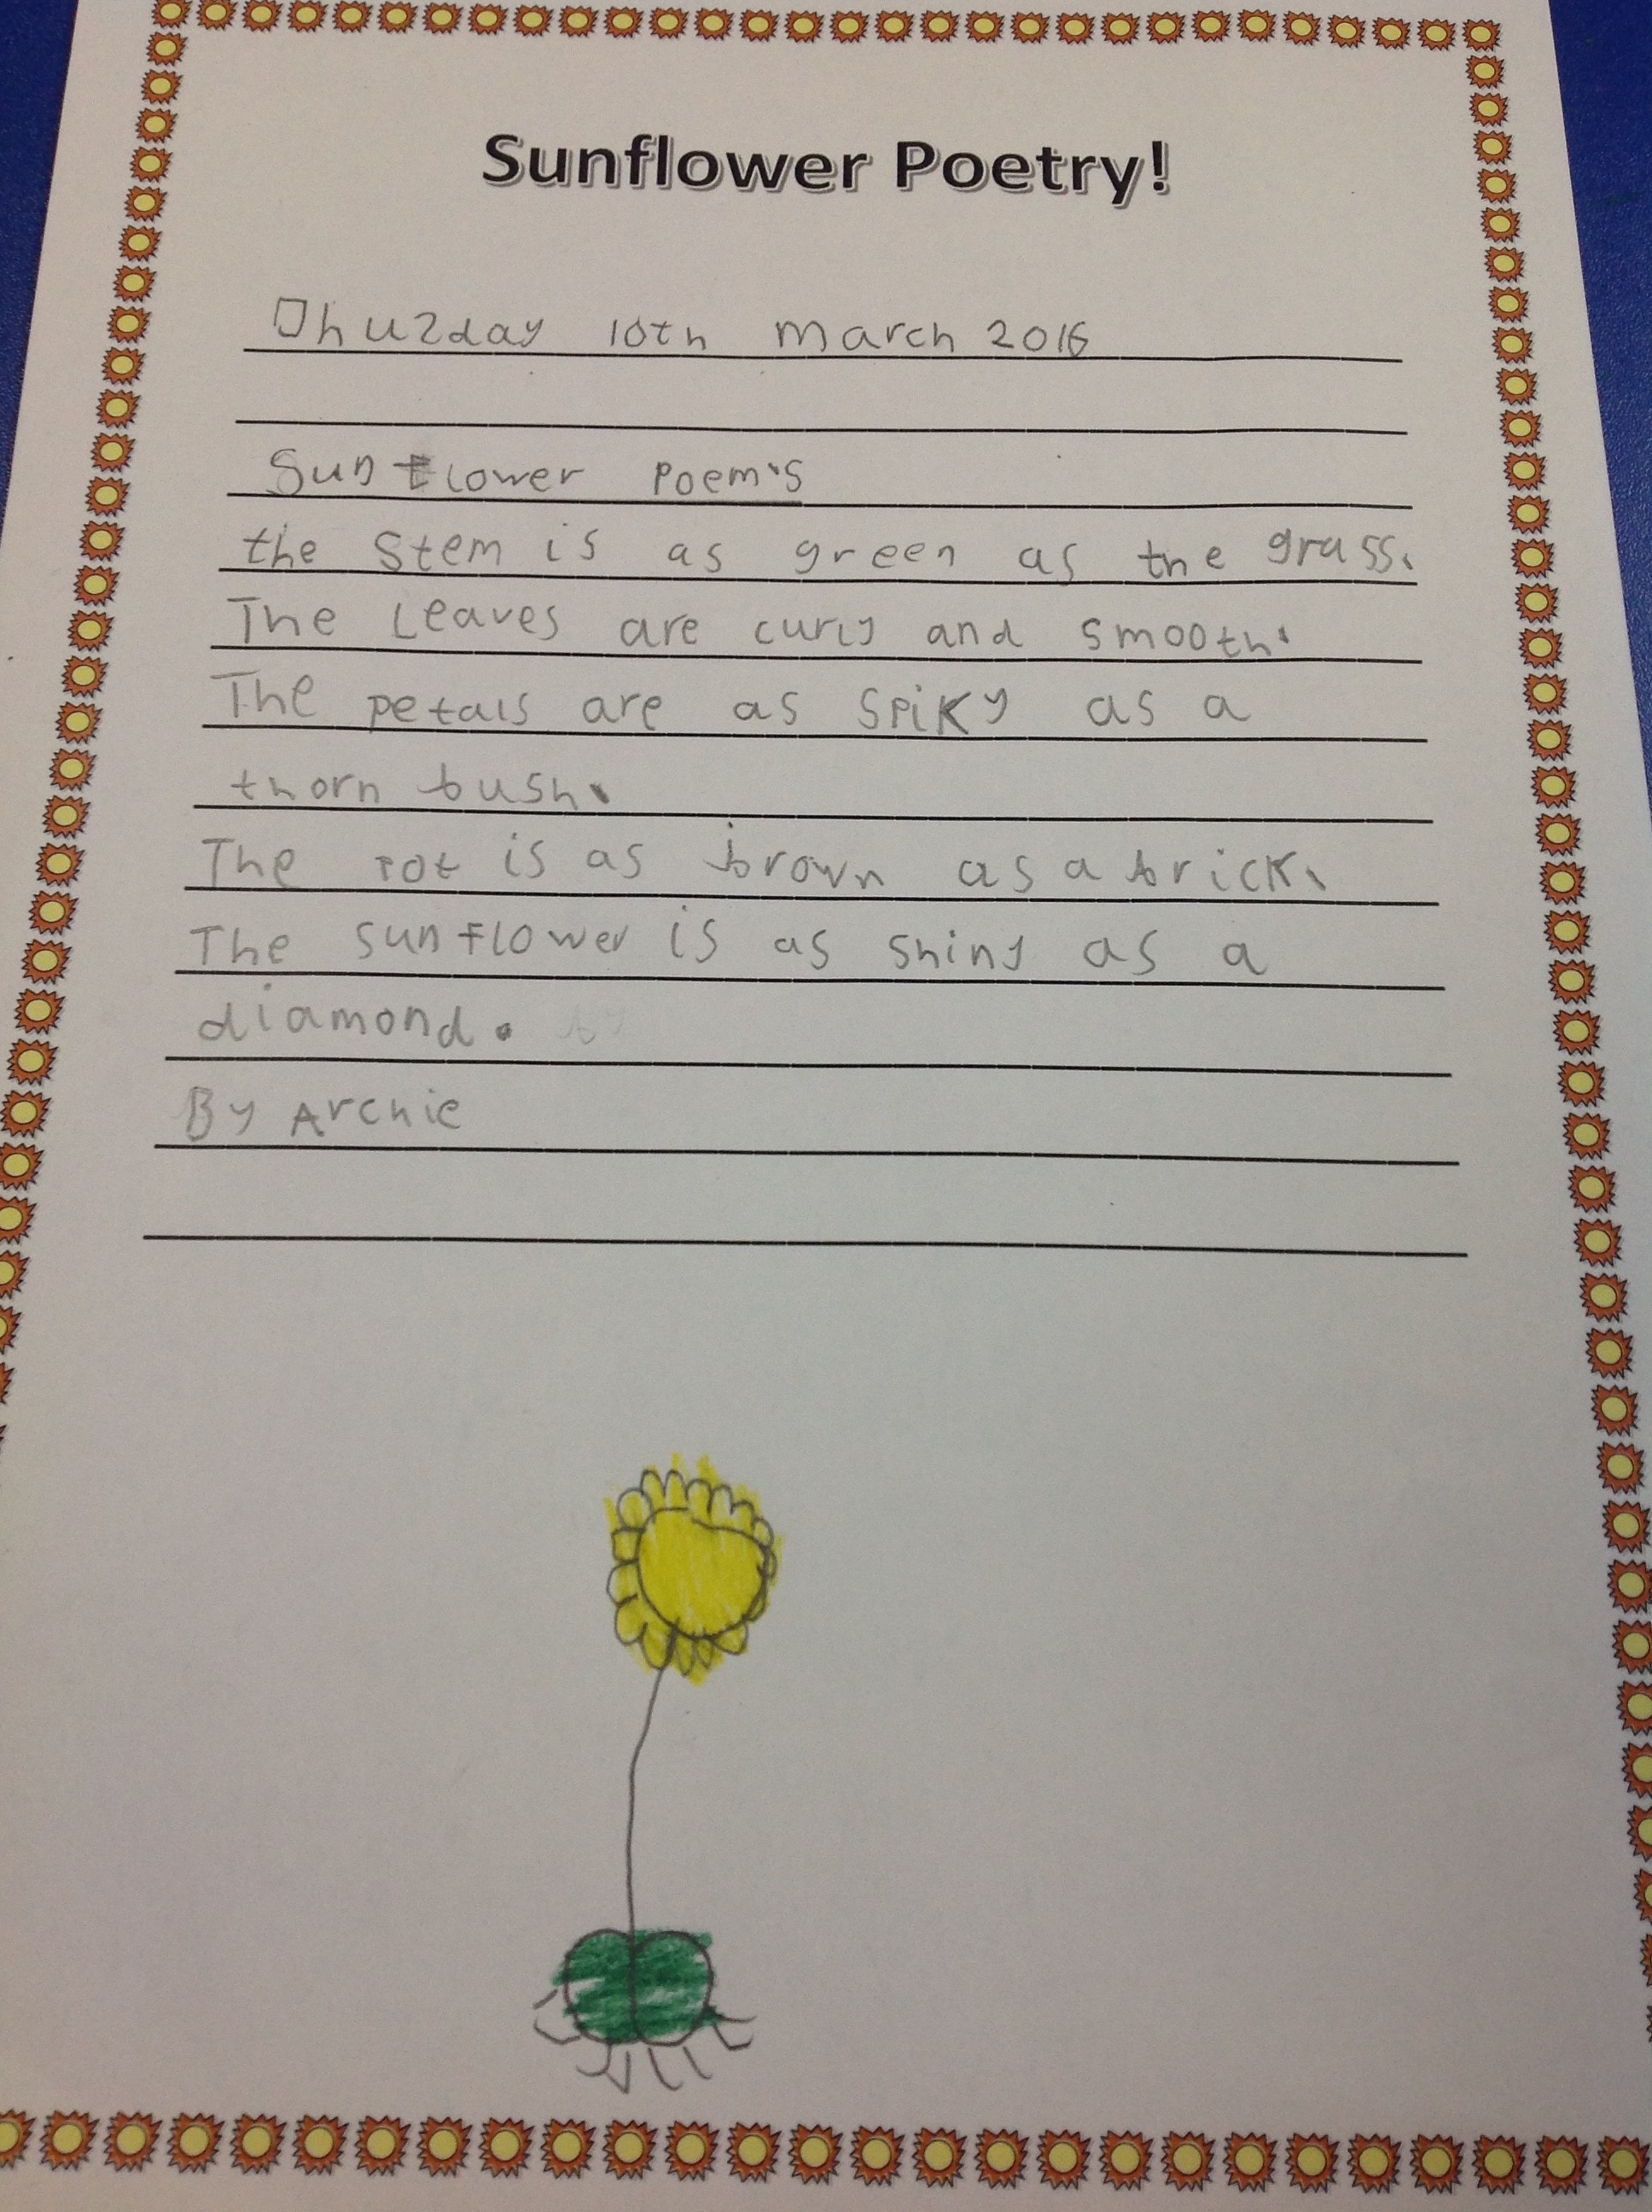 Sunflower Poetry!
Thuzday 10th March 2016
Sunflower Poem's
the stem is as green as the grass.
The Leaves are curly and smooth.
The petals are as spiky as a
thorn bush.
The rot is as brown as a brick.
The sunflower is as shiny as a
diamond. by
By Archie